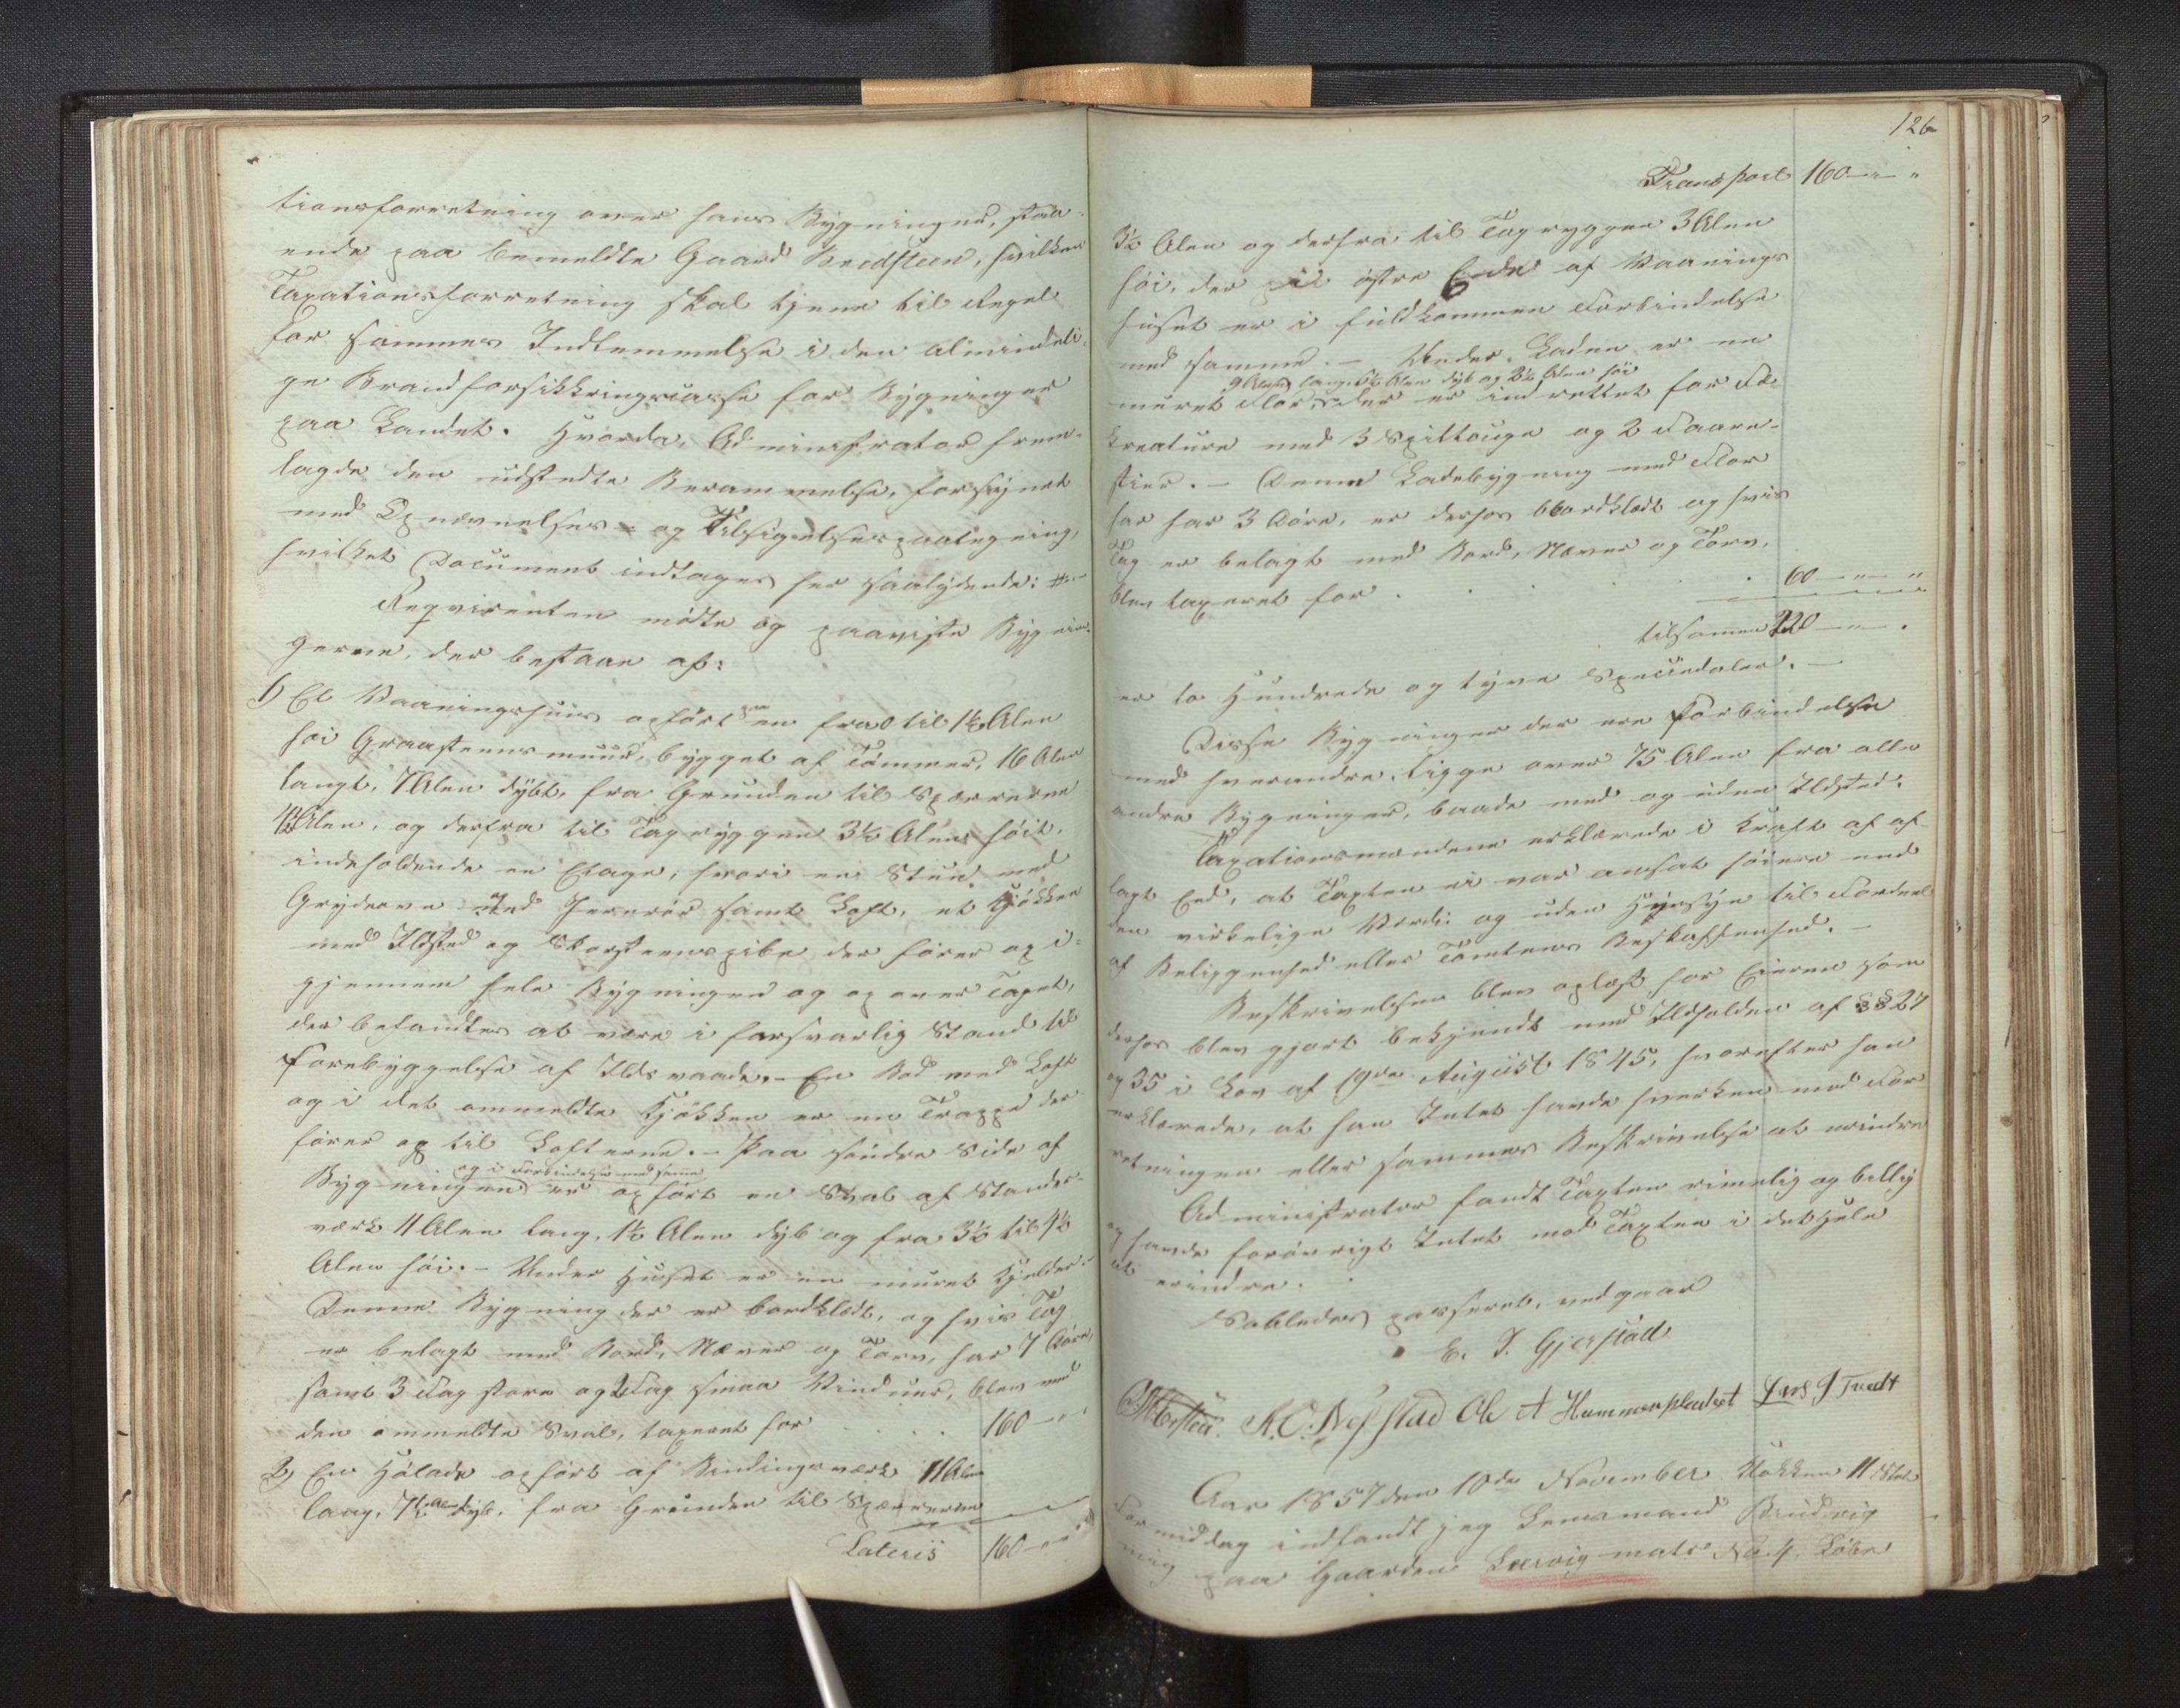 tionsforretning over hans Bygninger, staa-
ende paa bemeldte Gaard Bredsteen, hvilken
Taxationsforretning skal tjene til Regel
for sammes Indlemmelse i den almindeli-
ge Brandforsikkringscasse for Bygninger
paa Landet. Hvorda, Administrator frem-
lagde den udstedte Berammelse, forsynet
med Opnævnelses- og Tilsigelsespaategning,
hvilket Document indtages her saalydende: #.-
Reqvirenten mödte og paaviste Bygnin-
gerne, der bestaae af:
1) Et Vaaningshuus opfört paa en fra 0 til 1½ Alen
höi Graasteensmuur, bygget af Tömmer, 16 Alen
langt, 7 Alen dybt, fra Grunden til Spærrerne
Alen, og derfra til Tagryggen 3½ Alen höit,
indeholdende en Etage, hvori en Stue med
Grydeovn med Jernrör samt Loft, et Kjökken
med Ildsted og Skorsteenspibe der förer op i-
gjennem hele Bygningen og op over Taget,
der befandtes at være i forsvarlig Stand til
Forebyggelse af Ildsvaade.- En Bod med Loft
og i det ommeldte Kjökken er en Trappe der
förer op til Lofterne.- Paa söndre Side af
og i Forbindelse med samme
Bygningen er opfört en Sval af Stander-
værk 11 Alen lang, 1½ Alen dyb og fra 3½ til 4½
Alen höi.- Under Huset er en muret Kjelder.-
Denne Bygning der er bordklædt, og hvis Tag
er belagt med Bord, Næver og Torv, har 7 Döre,
samt 3 Fag store og 2 Fag smaa Vinduer, blev med
den ommeldte Sval, taxeret for . . . . 160 - " - "
2) En Hölade opfört af Bindingsværk 11 Alen
lang, 7½ Alen dyb, fra Grunden til Spærrerne
Lateris 160 - " - "
126
Transport 160 - " - "
3½ Alen og derfra til Tagryggen 3 Alen
höi, der paa östre Ende af Vaanings
huset er i fuldkommen Forbindelse
med samme.- Under Laden er en
9 Alen lang, 5½ Alen dyb og 2½ Alen höi
muret Flor, der er indrettet for Fæ-
kreature med 3 Spiltouge og 2 Faare-
stier.- Denne Ladebygning med Flor
har har 3 Döre, er derhos bbordklædt og hvis
Tag er belagt med Bord, Næver og Torv,
blev taxeret for . . . . . 60 - " - "
tilsammen 220 - " - "
er to Hundrede og tyve Speciedaler.-
Disse Bygninger der ere Forbindelse
med hverandre, ligge over 75 Alen fra alle
andre Bygninger, baade med og uden Ildsted.
Taxationsmændene erklærede i Kraft af af-
lagt Eed, at Taxten ei var ansat höiere end
den virkelige Værdi: og uden Hensyn til Fordeel
af Beliggenhed eller Tomtens Beskaffenhed.-
Beskrivelsen blev oplæst for Eieren som
derhos blev gjort bekjendt med Indholden af §§ 27
og 35 i Lov af 19de August 1845, hvorefter han
erklærede, at han Intet havde hverken mod For
retningen eller sammes Beskrivelse at erindre
Administrator fandt Taxten rimelig og billig
og havde forövrigt Intet mod Taxten i det Hele
at erindre.
Saaledes passeret, vedgaar
E. J. Gjerstad
R. O. Nesstad Ole A Hammerspladset Lars J Tvedt
Aar 1857 den 10de November Klokken 11 Slet
Formiddag indfandt jeg Lensmand
mig paa Gaarden Leervig matr No. 4, Löbe